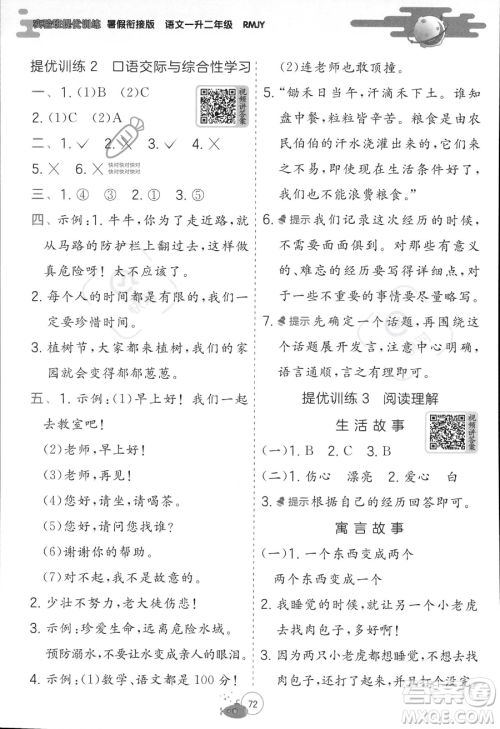 实验班提优训练 暑假衔接版 语文一升二年级 RMJY
提优训练 2 口语交际与综合性学习
一、1.(1)B (2)C
2.(1)C (2)A
视频讲答案
二、1.✓ 2.✓ 3.✗ 4.✓
5.✗ 6.✗ 7.✓
快对快对快对
三、1.④ 2.① 3.③ 4.② 5.⑤
四、示例:1. 牛牛,你为了走近路,就
从马路的防护栏上翻过去,这样做
真危险呀! 太不应该了。
2. 每个人的时间都是有限的,我们一
定要珍惜时间。
3. 植树节,大家都来植树,我们的家
园就会变得郁郁葱葱。
五、1. 示例:(1)牛牛,早上好! 我们一起
去教室吧!
(2)老师,早上好!
(3)老师,再见!
(4)您好,请坐,请喝茶。
(5)您好,请问您找谁?
(6)谢谢你的帮助。
(7)对不起,我不是故意的。
2. 少壮不努力,老大徒伤悲。
3. 示例:珍爱生命,远离危险水域。
预防溺水,不要让水成为亲人的眼泪。
4. 示例:(1)数学、语文都是 100 分!
(2)连老师都直夸你,这次你的进步
也太大了,简直到达了顶点。
5. “锄禾日当午,汗滴禾下土。谁知
盘中餐,粒粒皆辛苦。”粮食是由农
民伯伯们的汗水浇灌出来的,我们
可不能浪费粮食。
6. 提示:我们在讲这次经历的时候,
不需要面面俱到。对自己有意义
的、难忘的经历要重点描写,对经历
中不重要的事情要尽量略写。
7. 提示:先确定一个话题,再根据话
题展开发言,注意发言时,声音要响
亮,让大家都听清楚。
提优训练 3 阅读理解
生 活 故 事
视频讲答案
(一)1. B 2. C 3. B
(二)1. 伤心 漂亮 2. C 4. 白
3. 提示:根据自己的经历回答即可。
寓 言 故 事
(一)1. 一个东西变成两个
两个东西变成四个
2. 我睡觉的时候,我让一个小老虎
去找肉包子,我们就有肉包子了。
3. 因为两只老虎都想让对方去找肉
72